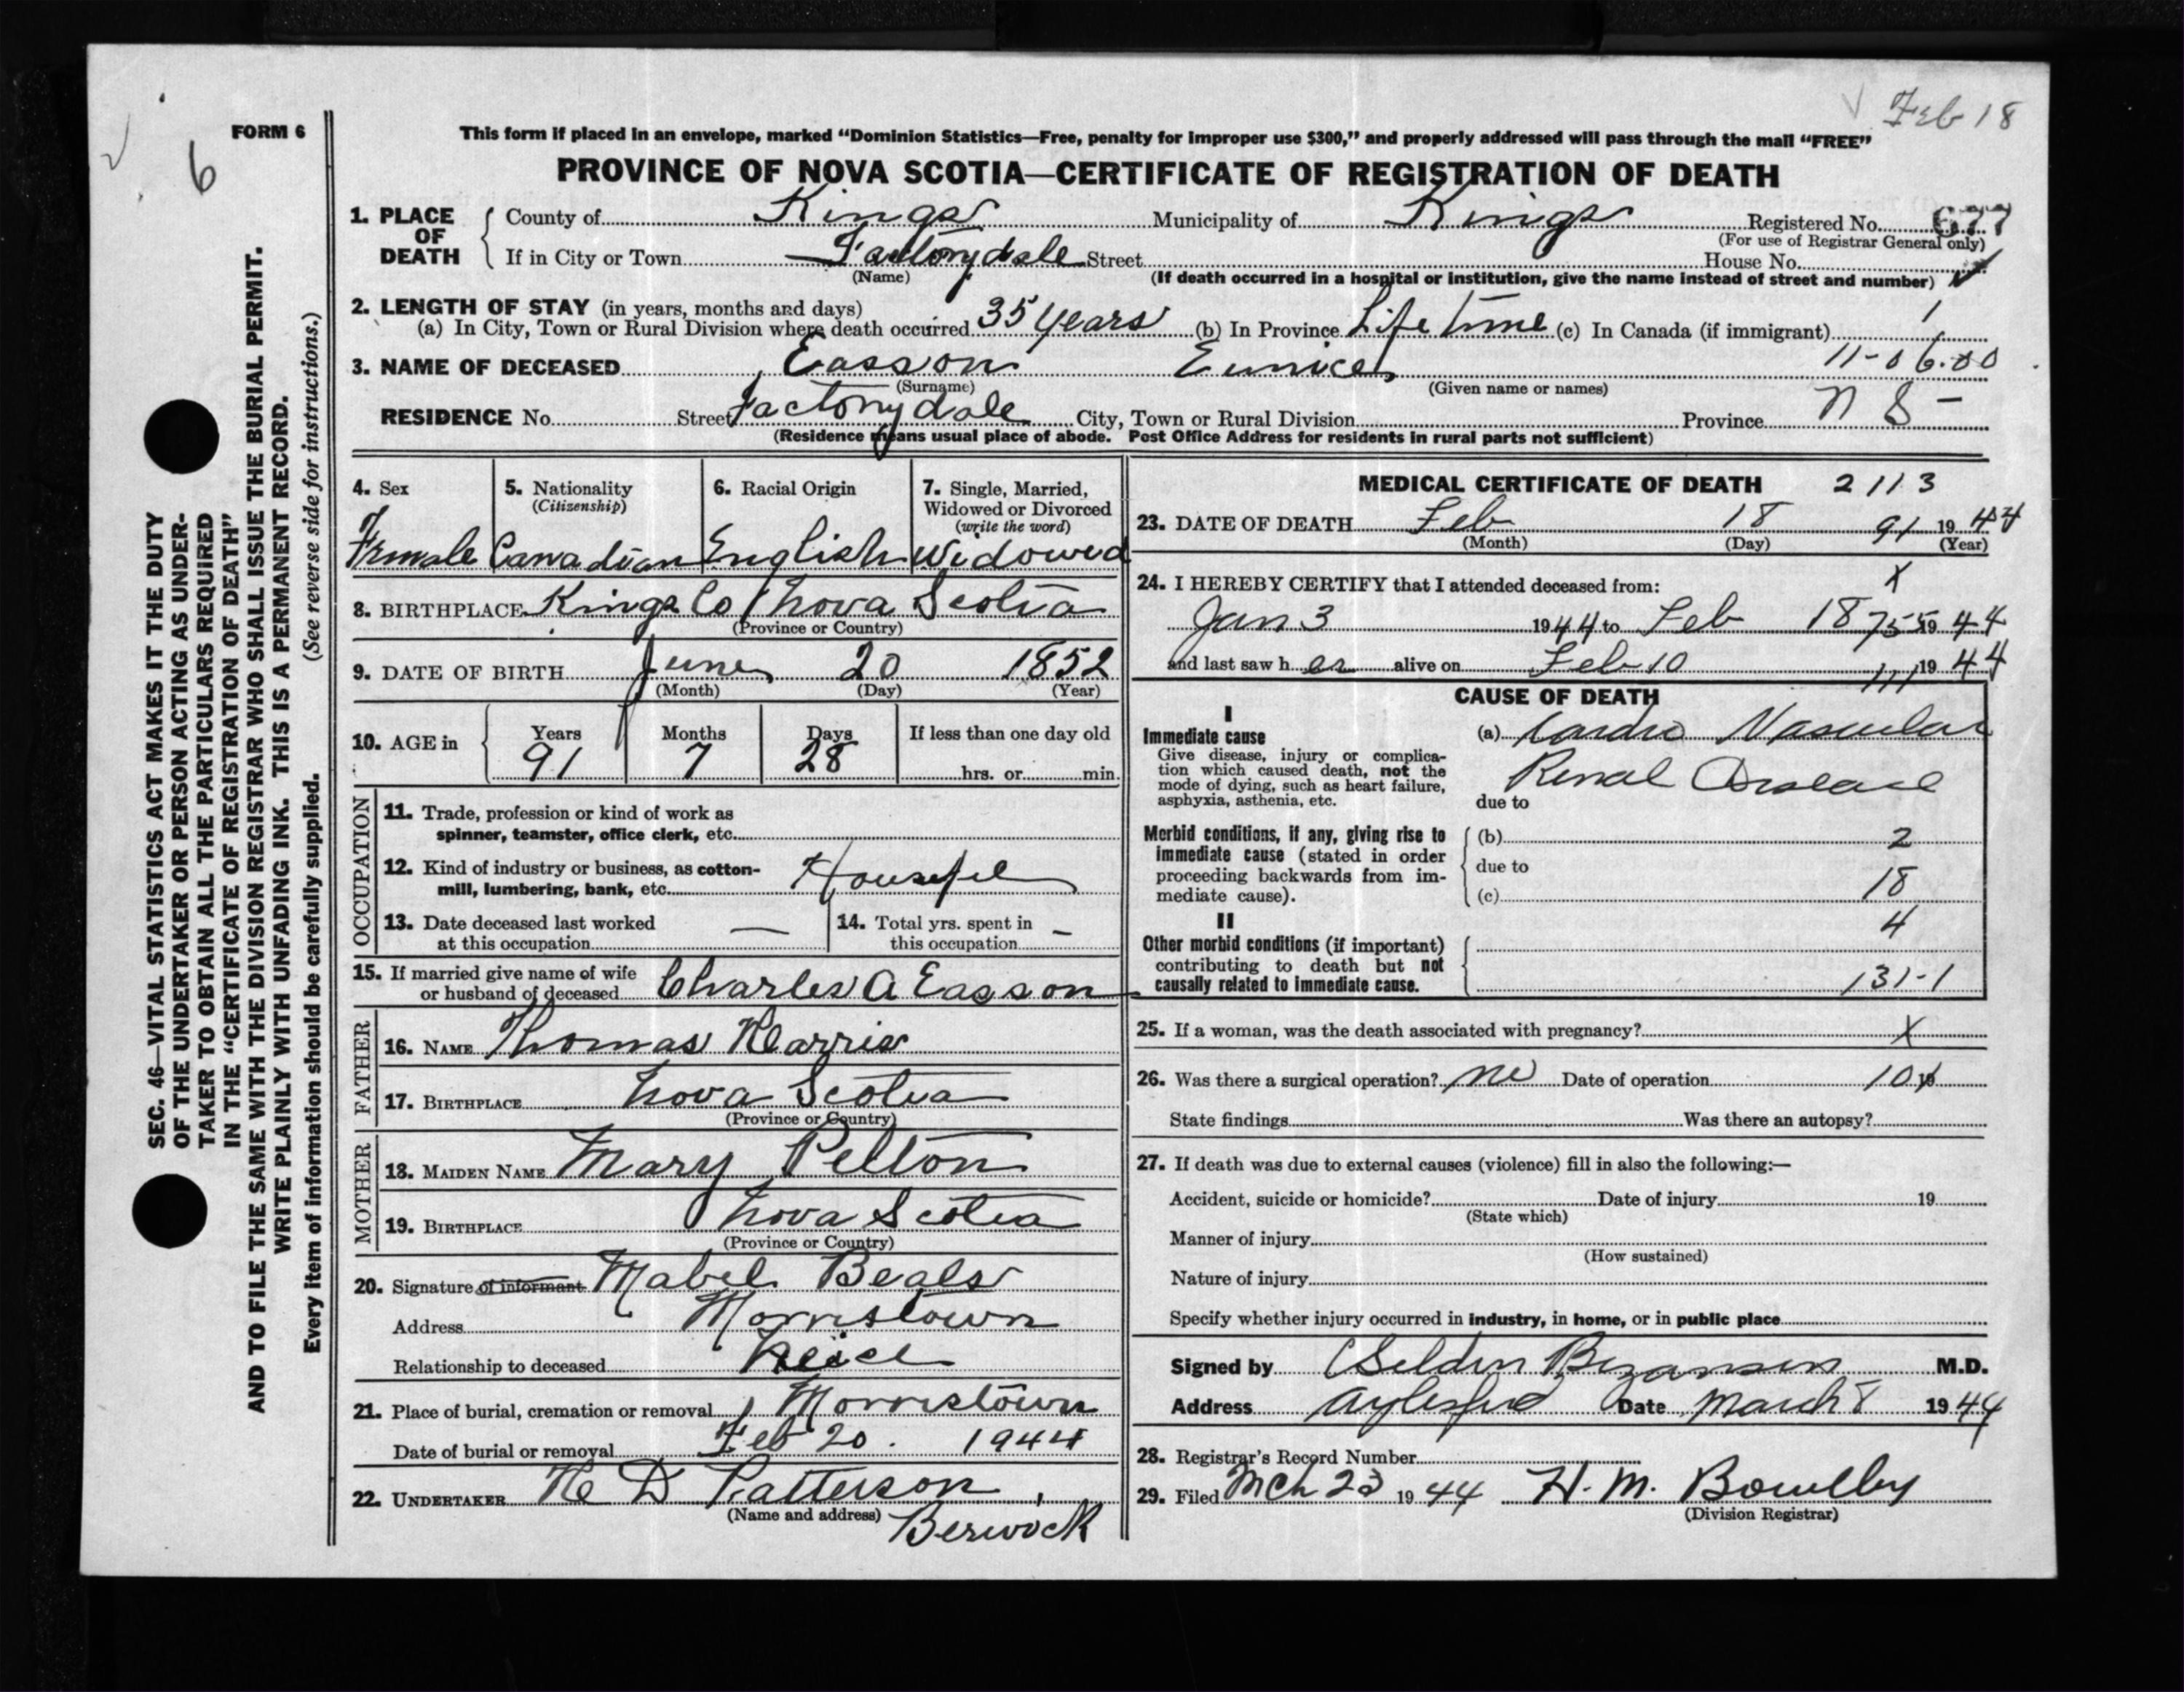 Feb 18
FORM 6
6
This form if placed in an envelope, marked “Dominion Statistics—Free, penalty for improper use $300,” and properly addressed will pass through the mail “FREE”
PROVINCE OF NOVA SCOTIA—CERTIFICATE OF REGISTRATION OF DEATH
1. PLACE OF DEATH
County of Kings Municipality of Kings Registered No. 677
(For use of Registrar General only)
If in City or Town Factorydale Street House No.
(Name) (If death occurred in a hospital or institution, give the name instead of street and number)
2. LENGTH OF STAY (in years, months and days)
(a) In City, Town or Rural Division where death occurred 35 years (b) In Province Life time (c) In Canada (if immigrant) 1
3. NAME OF DECEASED Easson Eunice 11-06.00
(Surname) (Given name or names)
RESIDENCE No. Street Factorydale City, Town or Rural Division Province N S -
(Residence means usual place of abode. Post Office Address for residents in rural parts not sufficient)
SEC. 46—VITAL STATISTICS ACT MAKES IT THE DUTY
OF THE UNDERTAKER OR PERSON ACTING AS UNDER-
TAKER TO OBTAIN ALL THE PARTICULARS REQUIRED
IN THE “CERTIFICATE OF REGISTRATION OF DEATH”
AND TO FILE THE SAME WITH THE DIVISION REGISTRAR WHO SHALL ISSUE THE BURIAL PERMIT.
WRITE PLAINLY WITH UNFADING INK. THIS IS A PERMANENT RECORD.
Every item of information should be carefully supplied. (See reverse side for instructions.)
4. Sex
Female
5. Nationality
(Citizenship)
Canadian
6. Racial Origin
English
7. Single, Married,
Widowed or Divorced
(write the word)
Widowed
8. BIRTHPLACE Kings Co Nova Scotia
(Province or Country)
9. DATE OF BIRTH June 20 1852
(Month) (Day) (Year)
10. AGE in
Years Months Days If less than one day old
91 7 28 hrs. or min.
OCCUPATION
11. Trade, profession or kind of work as
spinner, teamster, office clerk, etc.
12. Kind of industry or business, as cotton-
mill, lumbering, bank, etc.
13. Date deceased last worked
at this occupation —
14. Total yrs. spent in
this occupation –
15. If married give name of wife
or husband of deceased Charles A Easson
FATHER
16. NAME Thomas Harris
17. BIRTHPLACE Nova Scotia
(Province or Country)
MOTHER
18. MAIDEN NAME Mary Pelton
19. BIRTHPLACE Nova Scotia
(Province or Country)
20. Signature of informant Mabel Beals
Address Morristown
Relationship to deceased Neice
21. Place of burial, cremation or removal Morristown
Date of burial or removal Feb 20. 1944
22. UNDERTAKER D Patterson,
(Name and address) Berwick
MEDICAL CERTIFICATE OF DEATH 2113
23. DATE OF DEATH Feb 18 91 1944
(Month) (Day) (Year)
24. I HEREBY CERTIFY that I attended deceased from: X
Jan 3 1944 to Feb 18 755 1944
and last saw her alive on Feb 10 1944
CAUSE OF DEATH
I
Immediate cause
Give disease, injury or complica-
tion which caused death, not the
mode of dying, such as heart failure,
asphyxia, asthenia, etc.
(a) Cardio Vascular
Renal Disease
due to
Morbid conditions, if any, giving rise to
immediate cause (stated in order
proceeding backwards from im-
mediate cause).
(b) 2
due to
(c) 18
II
4
Other morbid conditions (if important)
contributing to death but not
causally related to immediate cause.
131-1
25. If a woman, was the death associated with pregnancy? X
26. Was there a surgical operation? no Date of operation 10 19
State findings Was there an autopsy?
27. If death was due to external causes (violence) fill in also the following:—
Accident, suicide or homicide? Date of injury 19
(State which)
Manner of injury
(How sustained)
Nature of injury
Specify whether injury occurred in industry, in home, or in public place
Signed by Selden Bezanson M.D.
Address Aylesford Date March 8 1944
28. Registrar's Record Number
29. Filed Mch 23 1944 H. M. Bowlby
(Division Registrar)